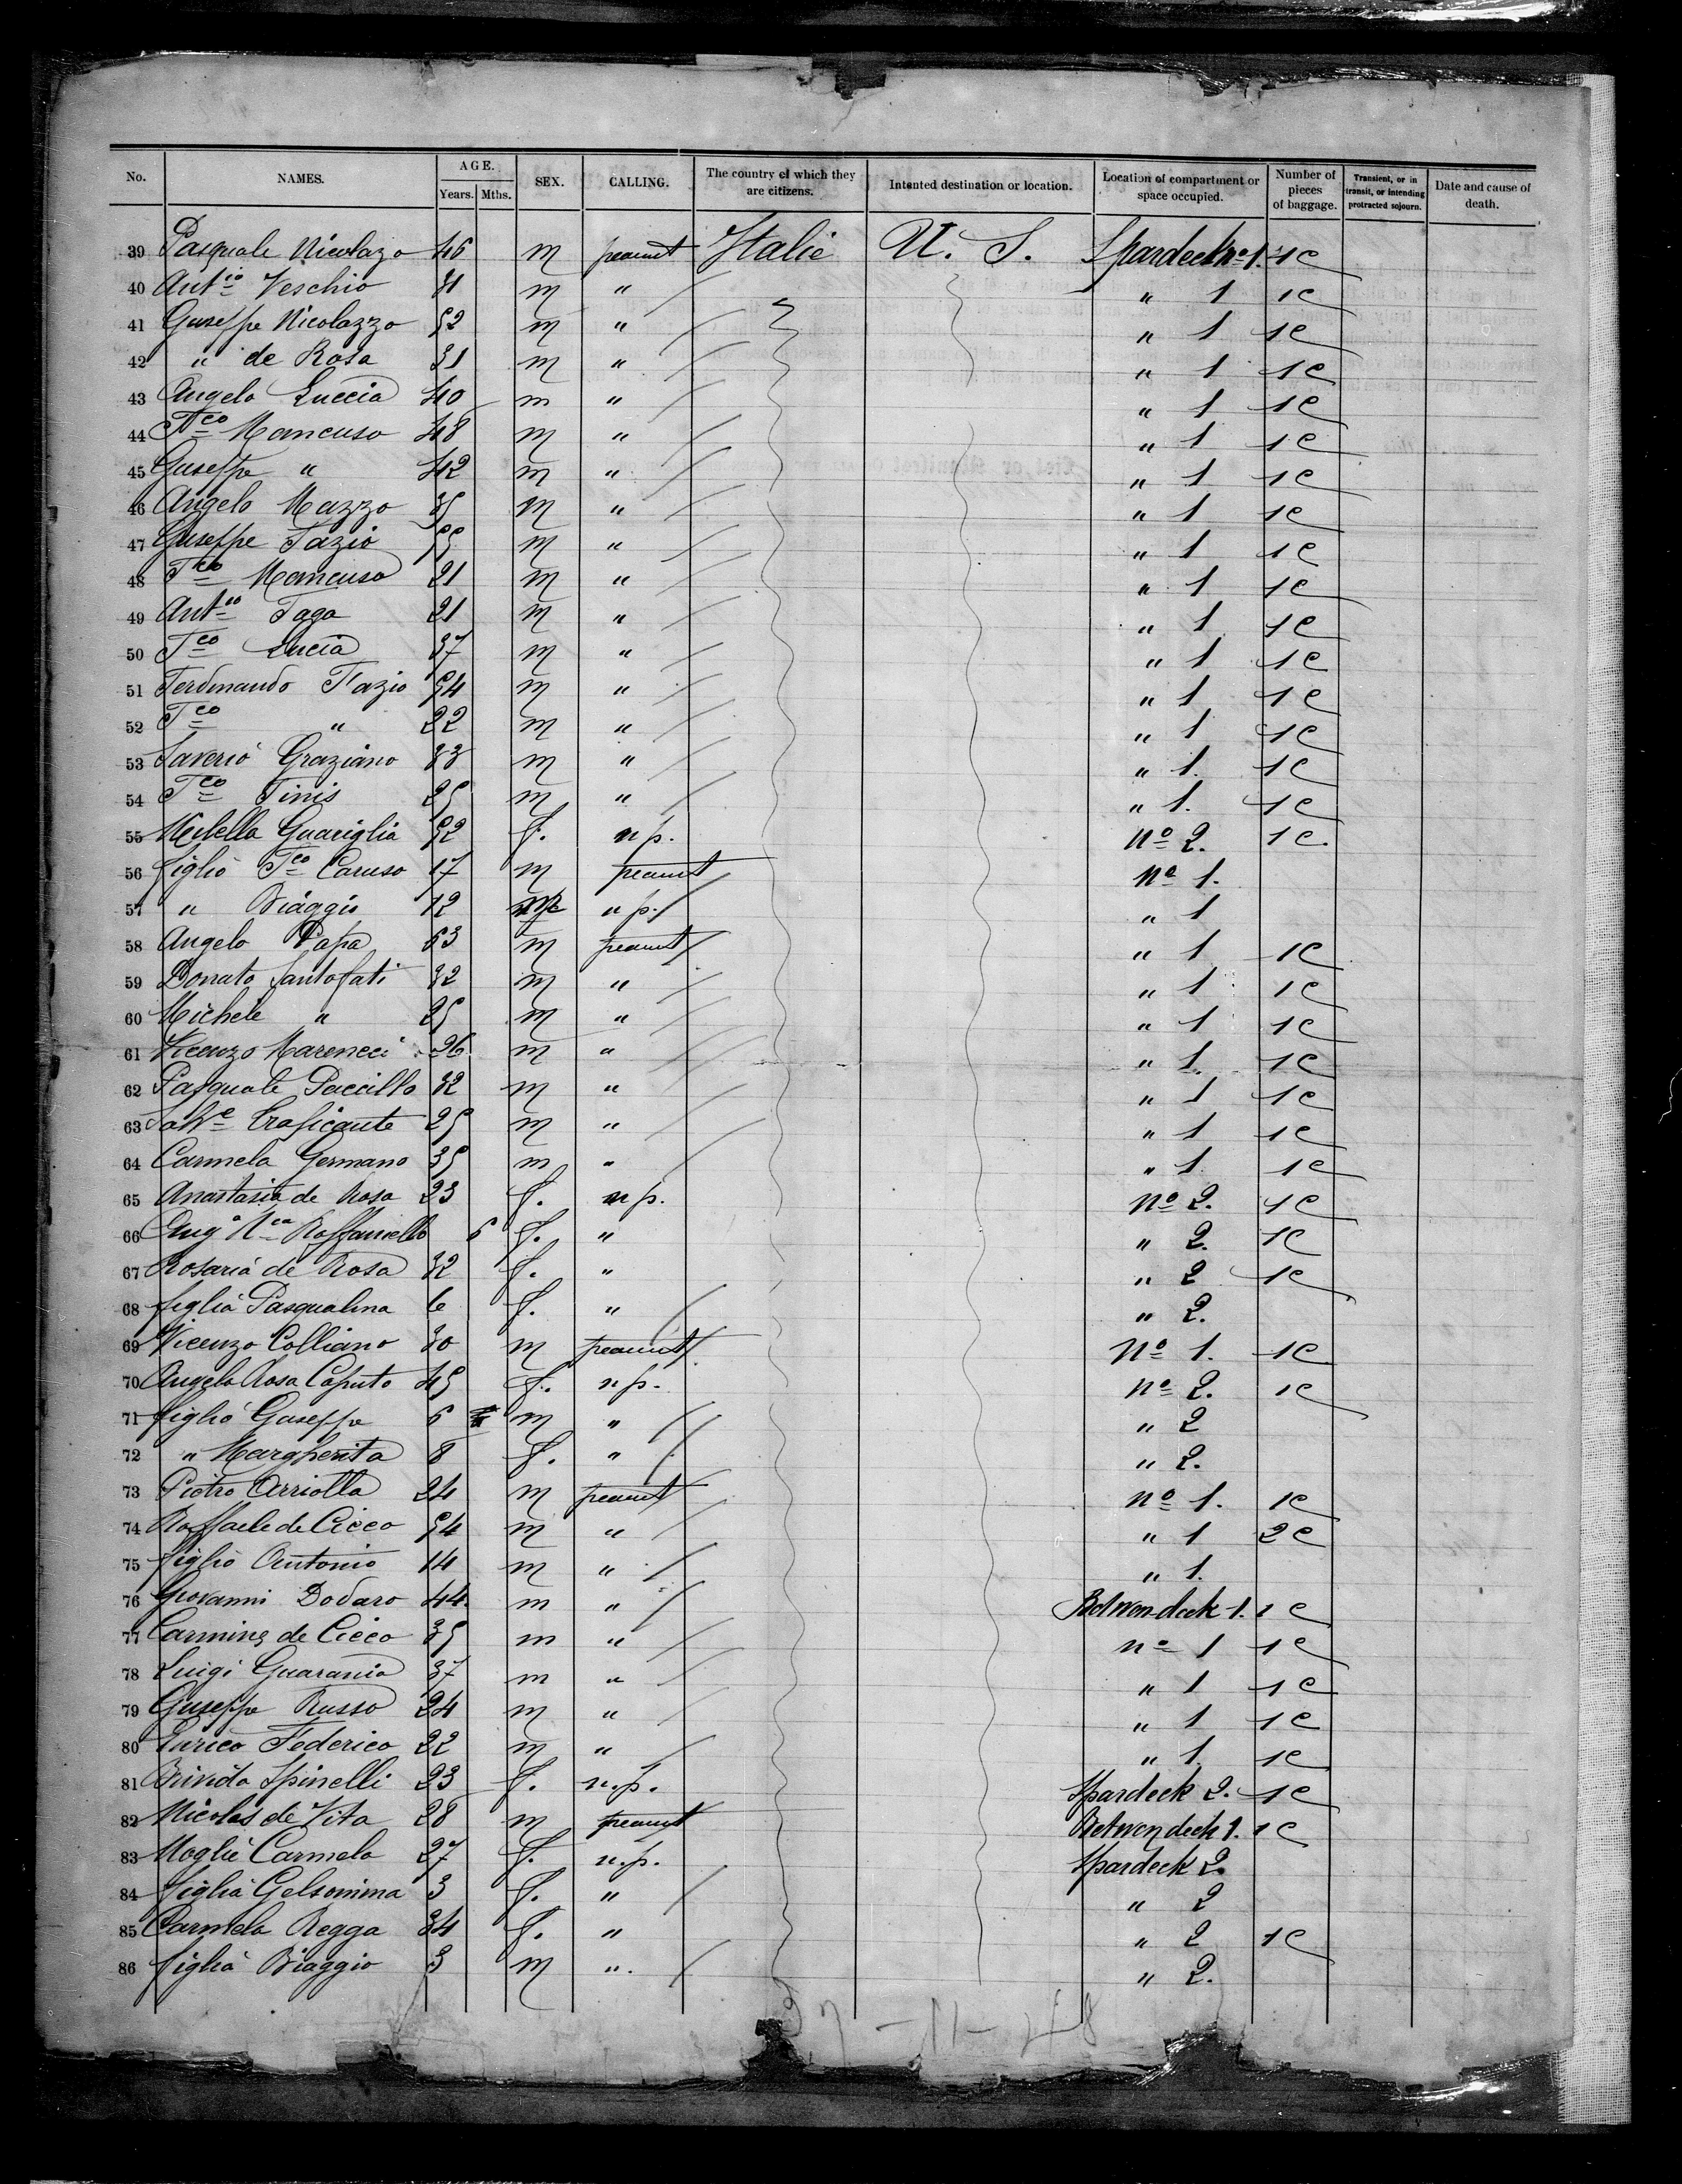 No. NAMES. AGE. Years. Mths. SEX. CALLING. The country of which they are citizens. Intented destination or location. Location of compartment or space occupied. Number of pieces of baggage. Transient, or in transit, or intending protracted sojourn. Date and cause of death.
39 Pasquale Nicolazo 46 m peasant Italie U. S. Spardeck no 1. 1c
40 Antio Veschio 31 m " " 1 1c
41 Guseppe Nicolazzo 52 m " " 1 1c
42 " de Rosa 31 m " " 1 1c
43 Angelo Luccia 40 m " " 1 1c
44 Fco Mancuso 48 m " " 1 1c
45 Guseppe " 42 m " " 1 1c
46 Angelo Mazzo 35 m " " 1 1c
47 Guseppe Fazio 55 m " " 1 1c
48 Fco Mancuso 21 m " " 1 1c
49 Antio Faga 21 m " " 1 1c
50 Fco Lucia 37 m " " 1 1c
51 Ferdinando Fazio 54 m " " 1 1c
52 Fco " 22 m " " 1 1c
53 Saverio Graziano 33 m " " 1. 1c
54 Fco Finis 25 m " " 1. 1c
55 Guariglia 52 f. n p. No 2. 1c.
56 figlio Fco Caruso 17 m peasant No 1.
57 " Biaggio 12 m n p. " 1
58 Angelo Papa 53 m peasant " 1 1c
59 Donato Santofati 32 m " " 1 1c
60 Michele " 25 m " " 1 1c
61 Vicenzo Marencci 26 m " " 1. 1c
62 Pasquale Paccillo 32 m " " 1 1c
63 Salve Traficante 25 m " " 1 1c
64 Carmela Germano 35 m " " 1 1c
65 Anastasia de Rosa 23 f. n p. No 2. 1c
66 Raffaniello 6 f. " " 2. 1c
67 Rosaria de Rosa 32 f. " " 2 1c
68 figlia Pasqualina 6 f. " " 2.
69 Vicenzo Colliano 30 m peasant No 1. 1c
70 Angela Rosa Caputo 45 f. n p. No 2. 1c
71 figlio Guseppe 6 m " " 2
72 " Margherita 8 f. " " 2.
73 Pietro Arriolla 24 m peasant No 1. 1c
74 Raffaele de Cicco 54 m " " 1 2c
75 figlio Antonio 14 m " " 1.
76 Giovanni Dodaro 44. m " Betwendeck 1. 1c
77 Carmine de Cicco 35 m " no 1 1c
78 Luigi Guarania 37 m " " 1 1c
79 Guseppe Russo 24 m " " 1 1c
80 Enrico Federico 22 m " " 1. 1c
81 Spinelli 23 f. n.p. Spardeck 2. 1c
82 Nicolas de Vita 28 m peasant Betwendeck 1. 1c
83 Moglie Carmela 27 f. n.p. Spardeck 2.
84 figlia Gelsomina 3 f. " " 2
85 Carmela Regga 34 f. " " 2 1c
86 figlia Biaggio 3 m " " 2.